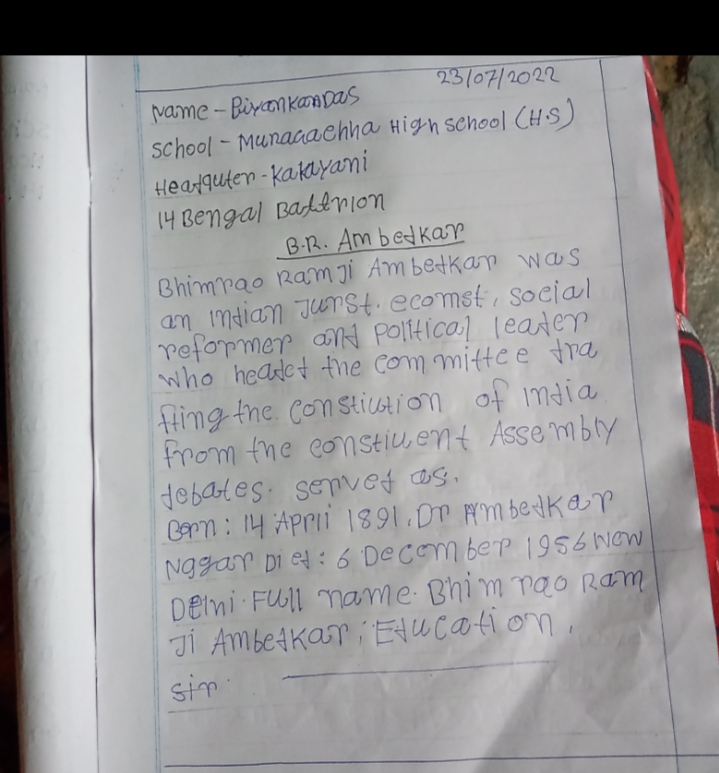 23/07/2022
Name - BiyonkanDas
School - Munagaehha High school (H.S)
Headquter - Kalayani
14 Bengal Battrion
B.R. Ambedkar
Bhimrao Ramji Ambedkar was
an indian Jurst. ecomst, social
reformer and political leader
who headed the committee dra
fting the constiution of india
from the constiuent Assembly
debates. served as.
Born : 14 April 1891, Dr Ambedkar
Naggar Died : 6 December 1956 New
Delni. Full name. Bhimrao Ram
Ji Ambedkar; Education,
sir.